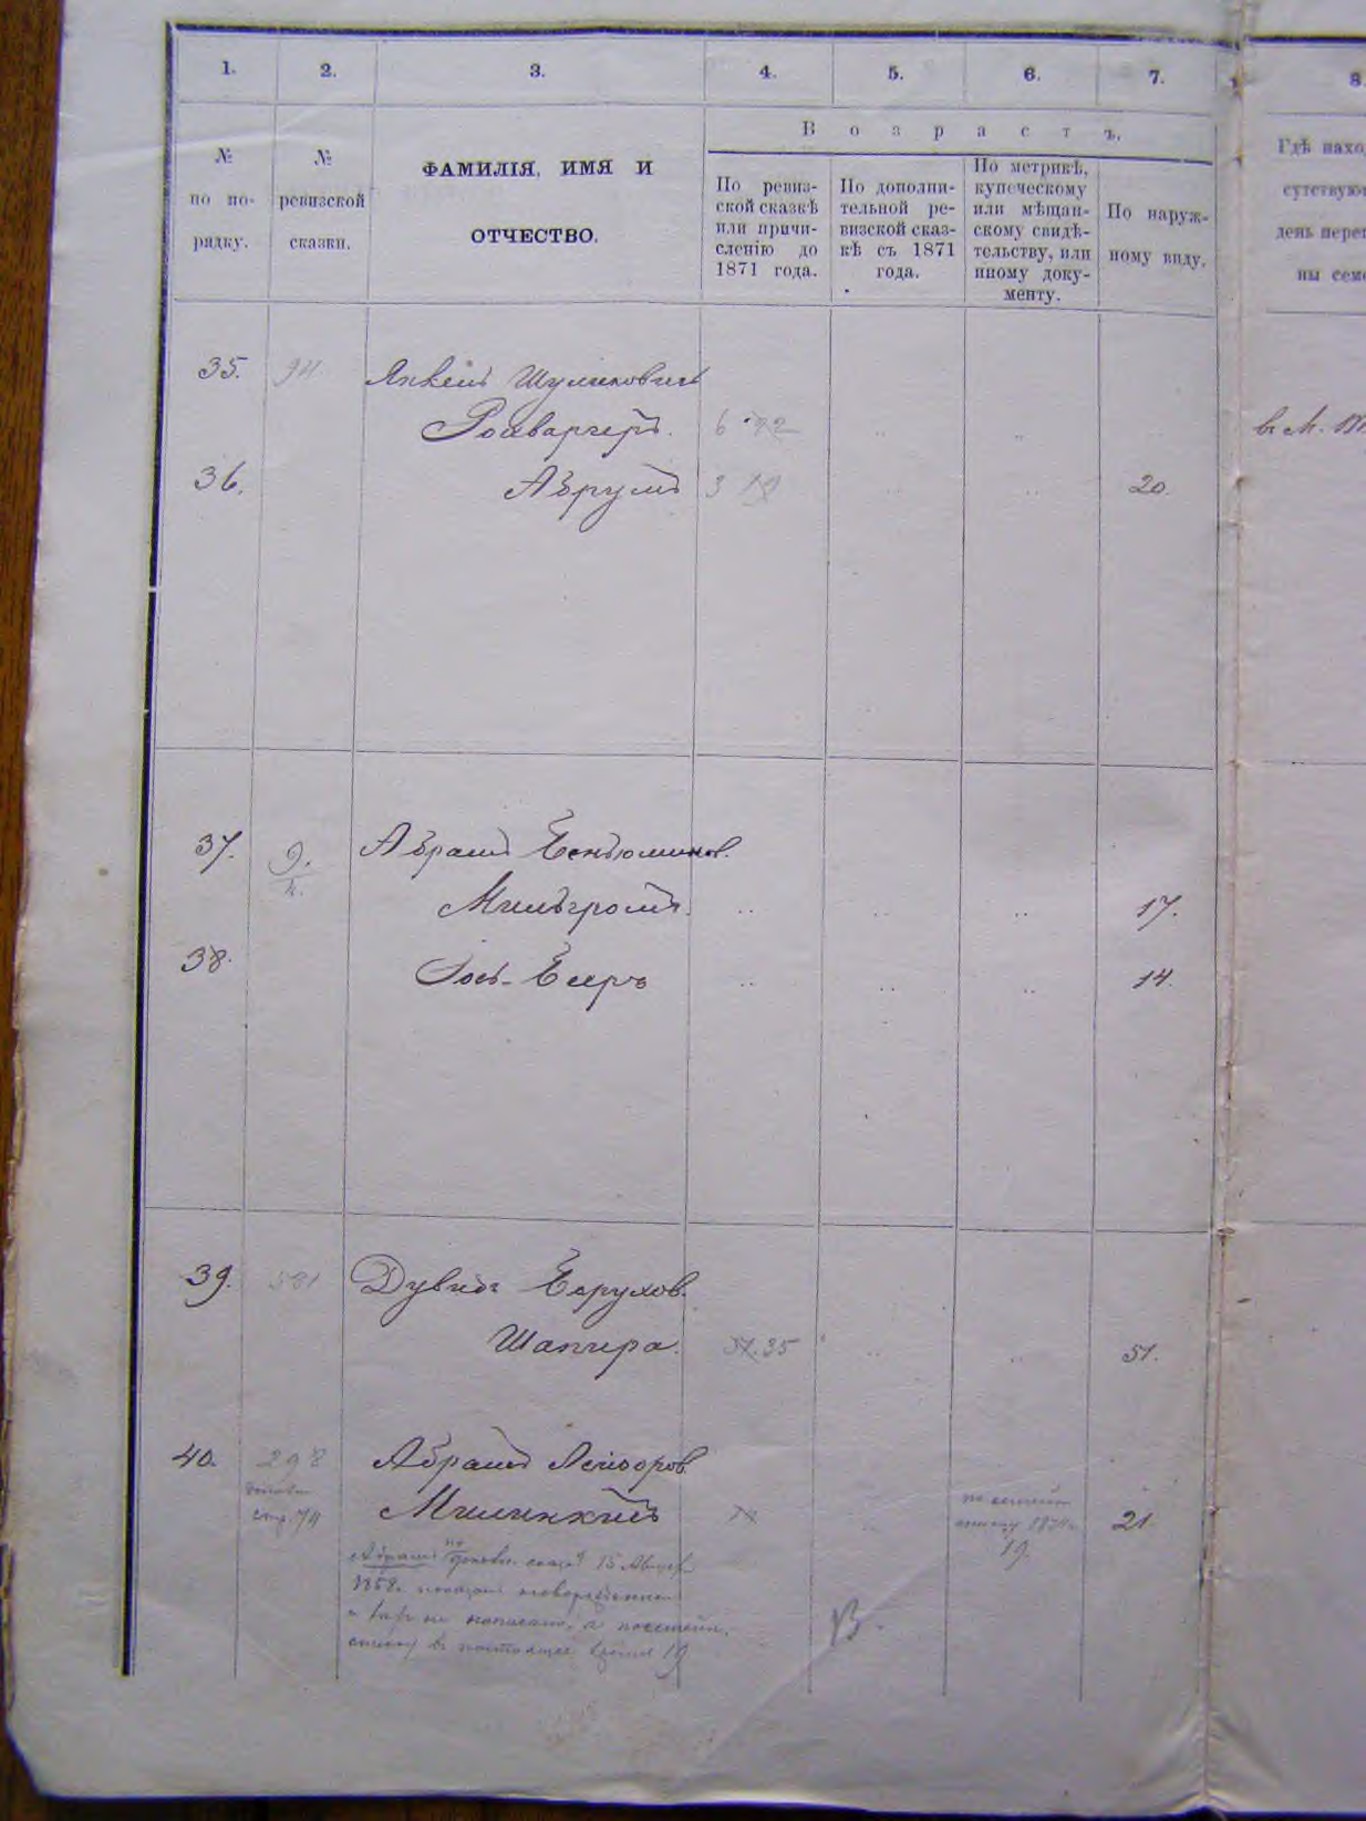 1. 2. 3. 4. 5. 6. 7. 8.
№ по по-рядку.
№ ревизской сказки.
ФАМИЛІЯ, ИМЯ И
ОТЧЕСТВО.
Возрастъ.
По ревиз-
ской сказкѣ
или причи-
сленію до
1871 года.
По дополни-
тельной ре-
визской сказ-
кѣ съ 1871
года.
По метрикѣ,
купеческому
или мѣщан-
скому свидѣ-
тельству, или
иному доку-
менту.
По наруж-
ному виду.
Гдѣ нахо
сутствую
день пере
ны сем
35. 94. Янкель Шулимовичъ
6 22
в м.
36. Абрумъ 3 19 20.
37. 9. Абрамъ Беньюминов.
Мильгромъ. 17.
38. Іось-Беръ 14.
39. 581 Дувидъ Борухов.
Шапира. 51. 35 51.
40. 298 Абрамъ Лейзоров.
стр. 74 21.
Абрамъ по сказкѣ 15
1858. показанъ
и не написано, а
списку в настоящее время 19
1874
19.
В.